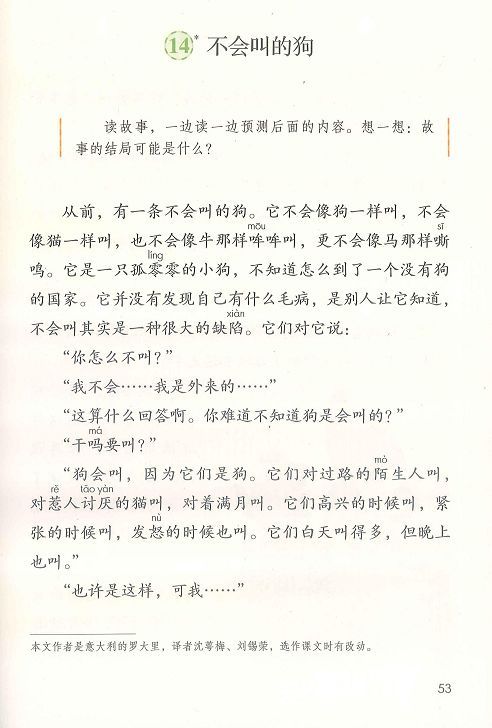 14* 不会叫的狗
读故事，一边读一边预测后面的内容。想一想：故
事的结局可能是什么？
从前，有一条不会叫的狗。它不会像狗一样叫，不会
mōu sī
像猫一样叫，也不会像牛那样哞哞叫，更不会像马那样嘶
líng
鸣。它是一只孤零零的小狗，不知道怎么到了一个没有狗
的国家。它并没有发现自己有什么毛病，是别人让它知道，
xiàn
不会叫其实是一种很大的缺陷。它们对它说：
“你怎么不叫？”
“我不会……我是外来的……”
“这算什么回答啊。你难道不知道狗是会叫的？”
má
“干吗要叫？”
mò
“狗会叫，因为它们是狗。它们对过路的陌生人叫，
rě tǎo yàn
对惹人讨厌的猫叫，对着满月叫。它们高兴的时候叫，紧
nù
张的时候叫，发怒的时候也叫。它们白天叫得多，但晚上
也叫。”
“也许是这样，可我……”
本文作者是意大利的罗大里，译者沈萼梅、刘锡荣，选作课文时有改动。
53